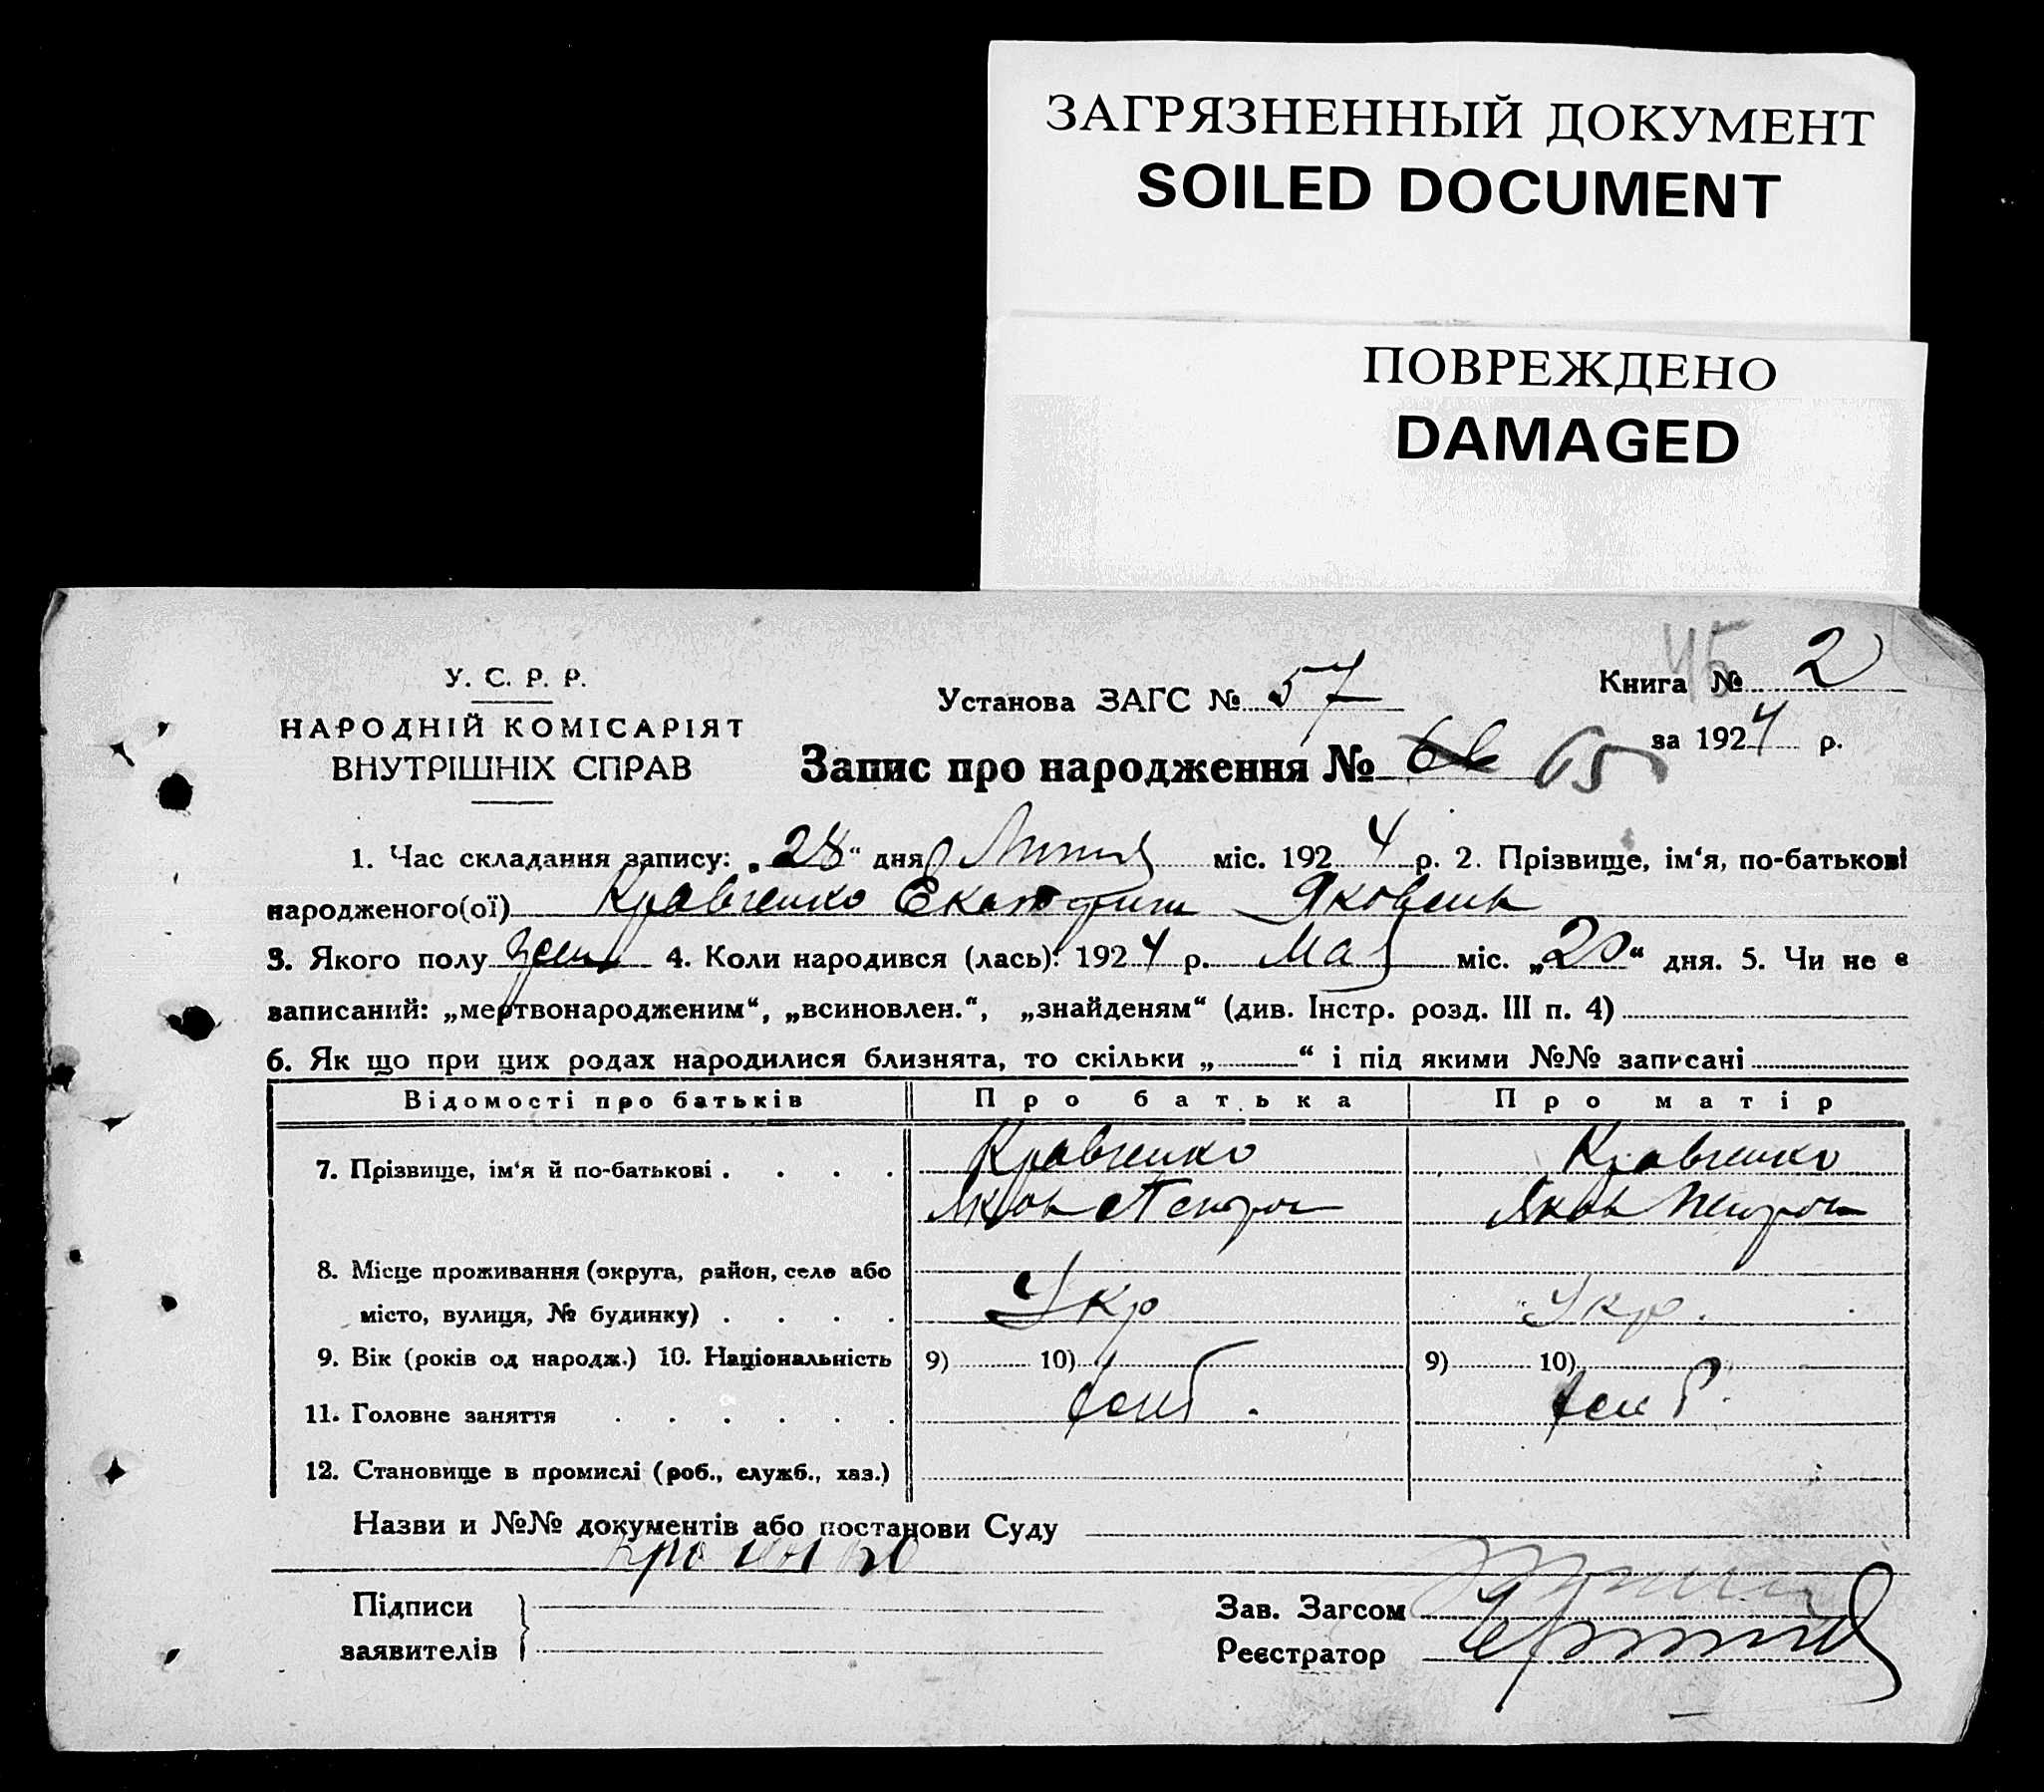 ЗАГРЯЗНЕННЫЙ ДОКУМЕНТ
SOILED DOCUMENT
ПОВРЕЖДЕНО
DAMAGED
У. С. Р. Р.
НАРОДНІЙ КОМІСАРІЯТ
ВНУТРІШНІХ СПРАВ
Установа ЗАГС № 57
45
Книга № 2
за 1924 р.
Запис про народження № 65
1. Час складання запису: „28“ дня міс. 1924 р. 2. Прізвище, ім‘я, по-батькові
народженого(ої) Кравченко Екатерина Яковлевна
3. Якого полу жен 4. Коли народився (лась): 1924 р. Мая міс. „20“ дня. 5. Чи не є
записаний: „мертвонародженим“, „всиновлен.“, „знайденям“ (див. Інстр. розд. III п. 4)
6. Як що при цих родах народилися близнята, то скільки „ “ і під якими №№ записані
Відомості про батьків Про батька Про матір
7. Прізвище, ім‘я й по-батькові . . . . Кравченко Кравченко
Яков Петров Яков Петров
8. Місце проживання (округа, район, село або
місто, вулиця, № будинку) . . . . Укр Укр.
9. Вік (років од народж.) 10. Національність 9) 10) 9) 10)
11. Головне заняття . . . . . .
12. Становище в промислі (роб., служб., хаз.)
Назви и №№ документів або постанови Суду
Підписи
заявителів
Зав. Загсом
Реєстратор